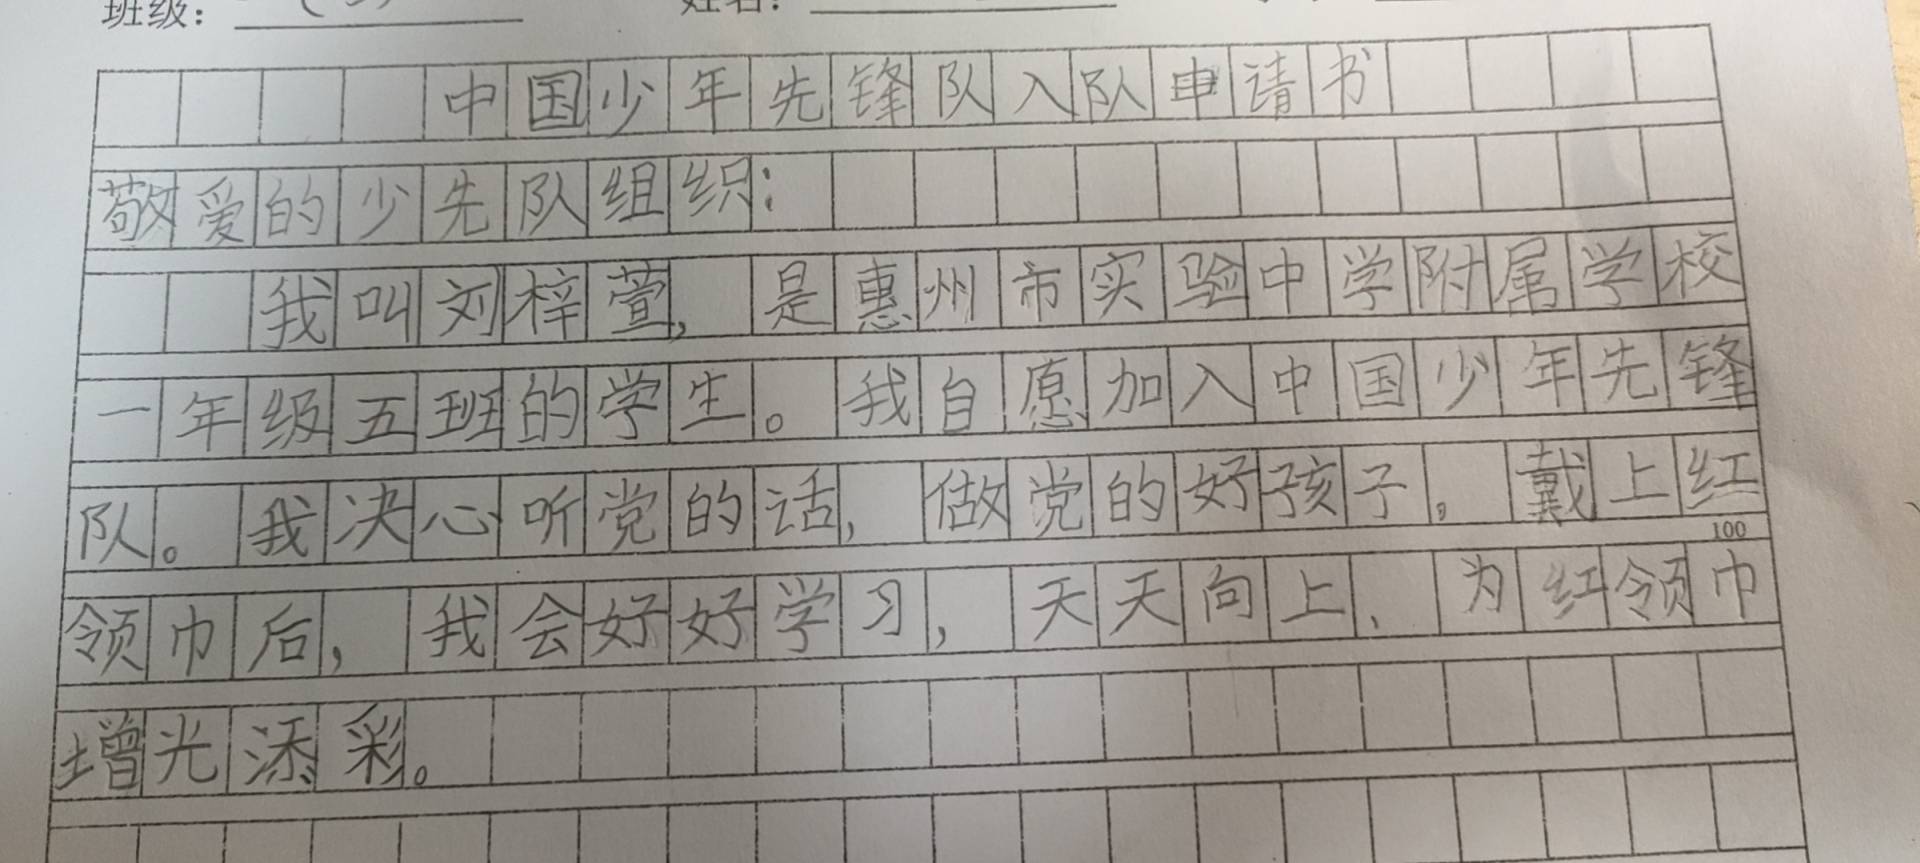 班级：
姓名：
中国少年先锋队入队申请书
敬爱的少先队组织：
我叫刘梓萱，是惠州市实验中学附属学校
一年级五班的学生。我自愿加入中国少年先锋
队。我决心听党的话，做党的好孩子，戴上红
100
领巾后，我会好好学习，天天向上、为红领巾
增光添彩。